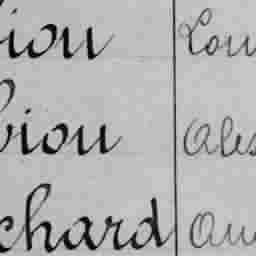 iou Lou
iou Ales
chard Au